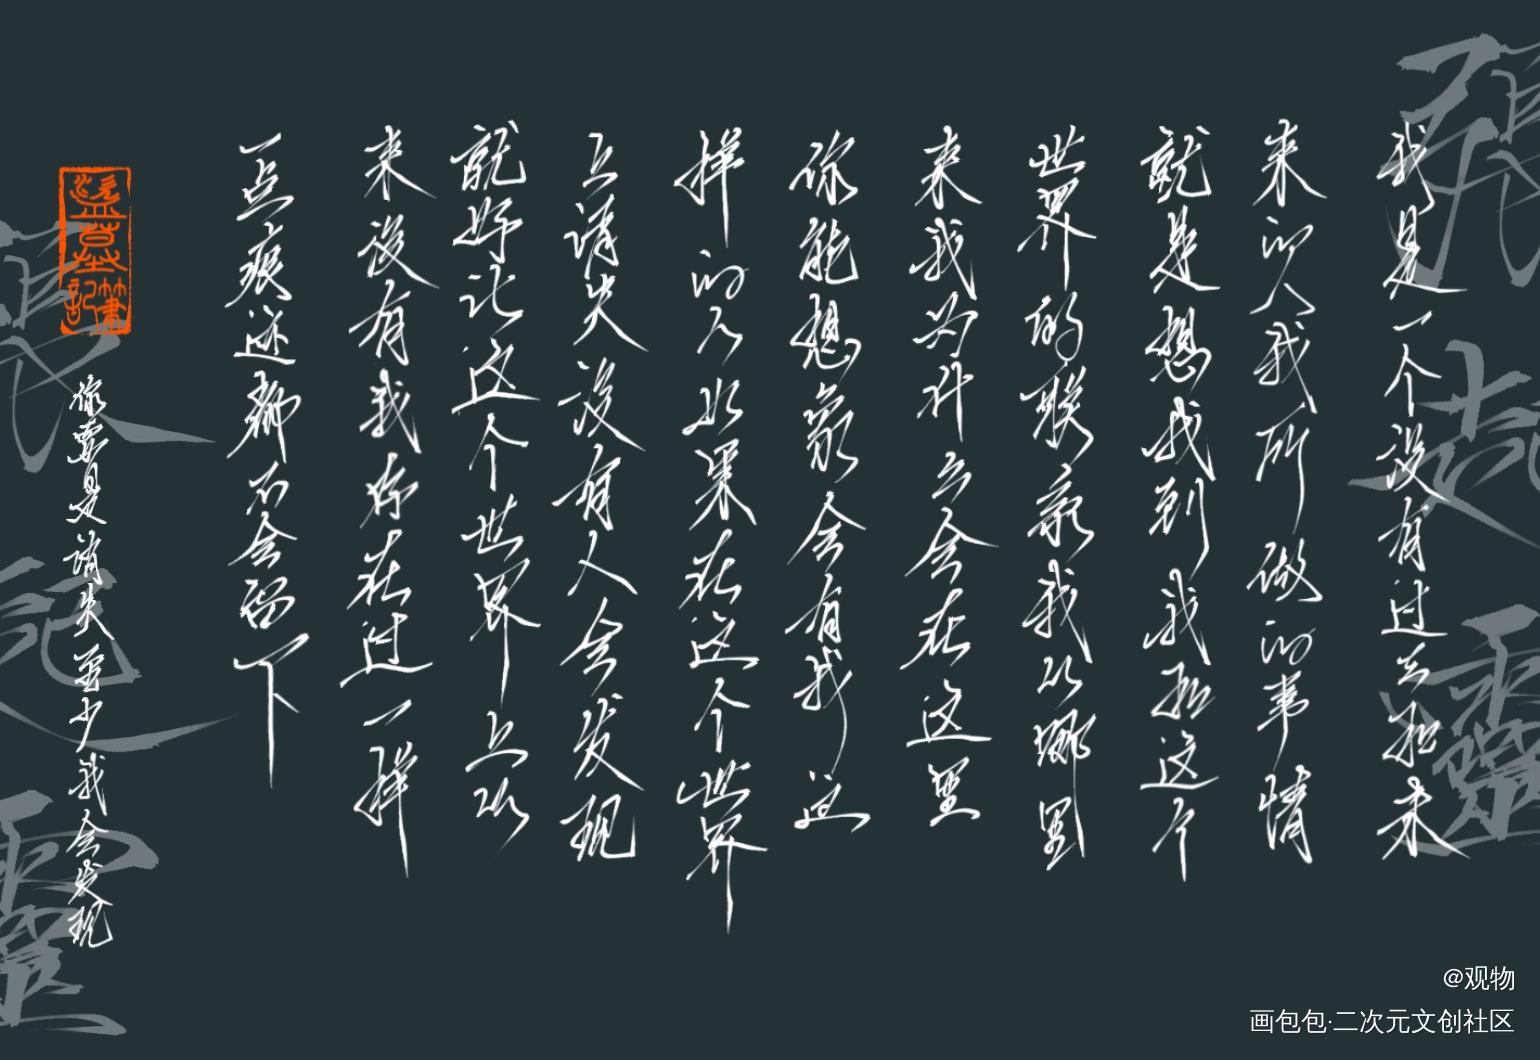 張起靈
我是一个没有过去和未
来的人我所做的事情
就是想找到我和这个
世界的联系我从哪里
来我为什么会在这里
你能想象会有我这
样的人如果在这个世界
上消失没有人会发现
就好比这个世界上从
来没有我存在过一样
一点痕迹都不会留下
盗墓筆記
你要是消失至少我会发现
張起靈
@观物
画包包·二次元文创社区